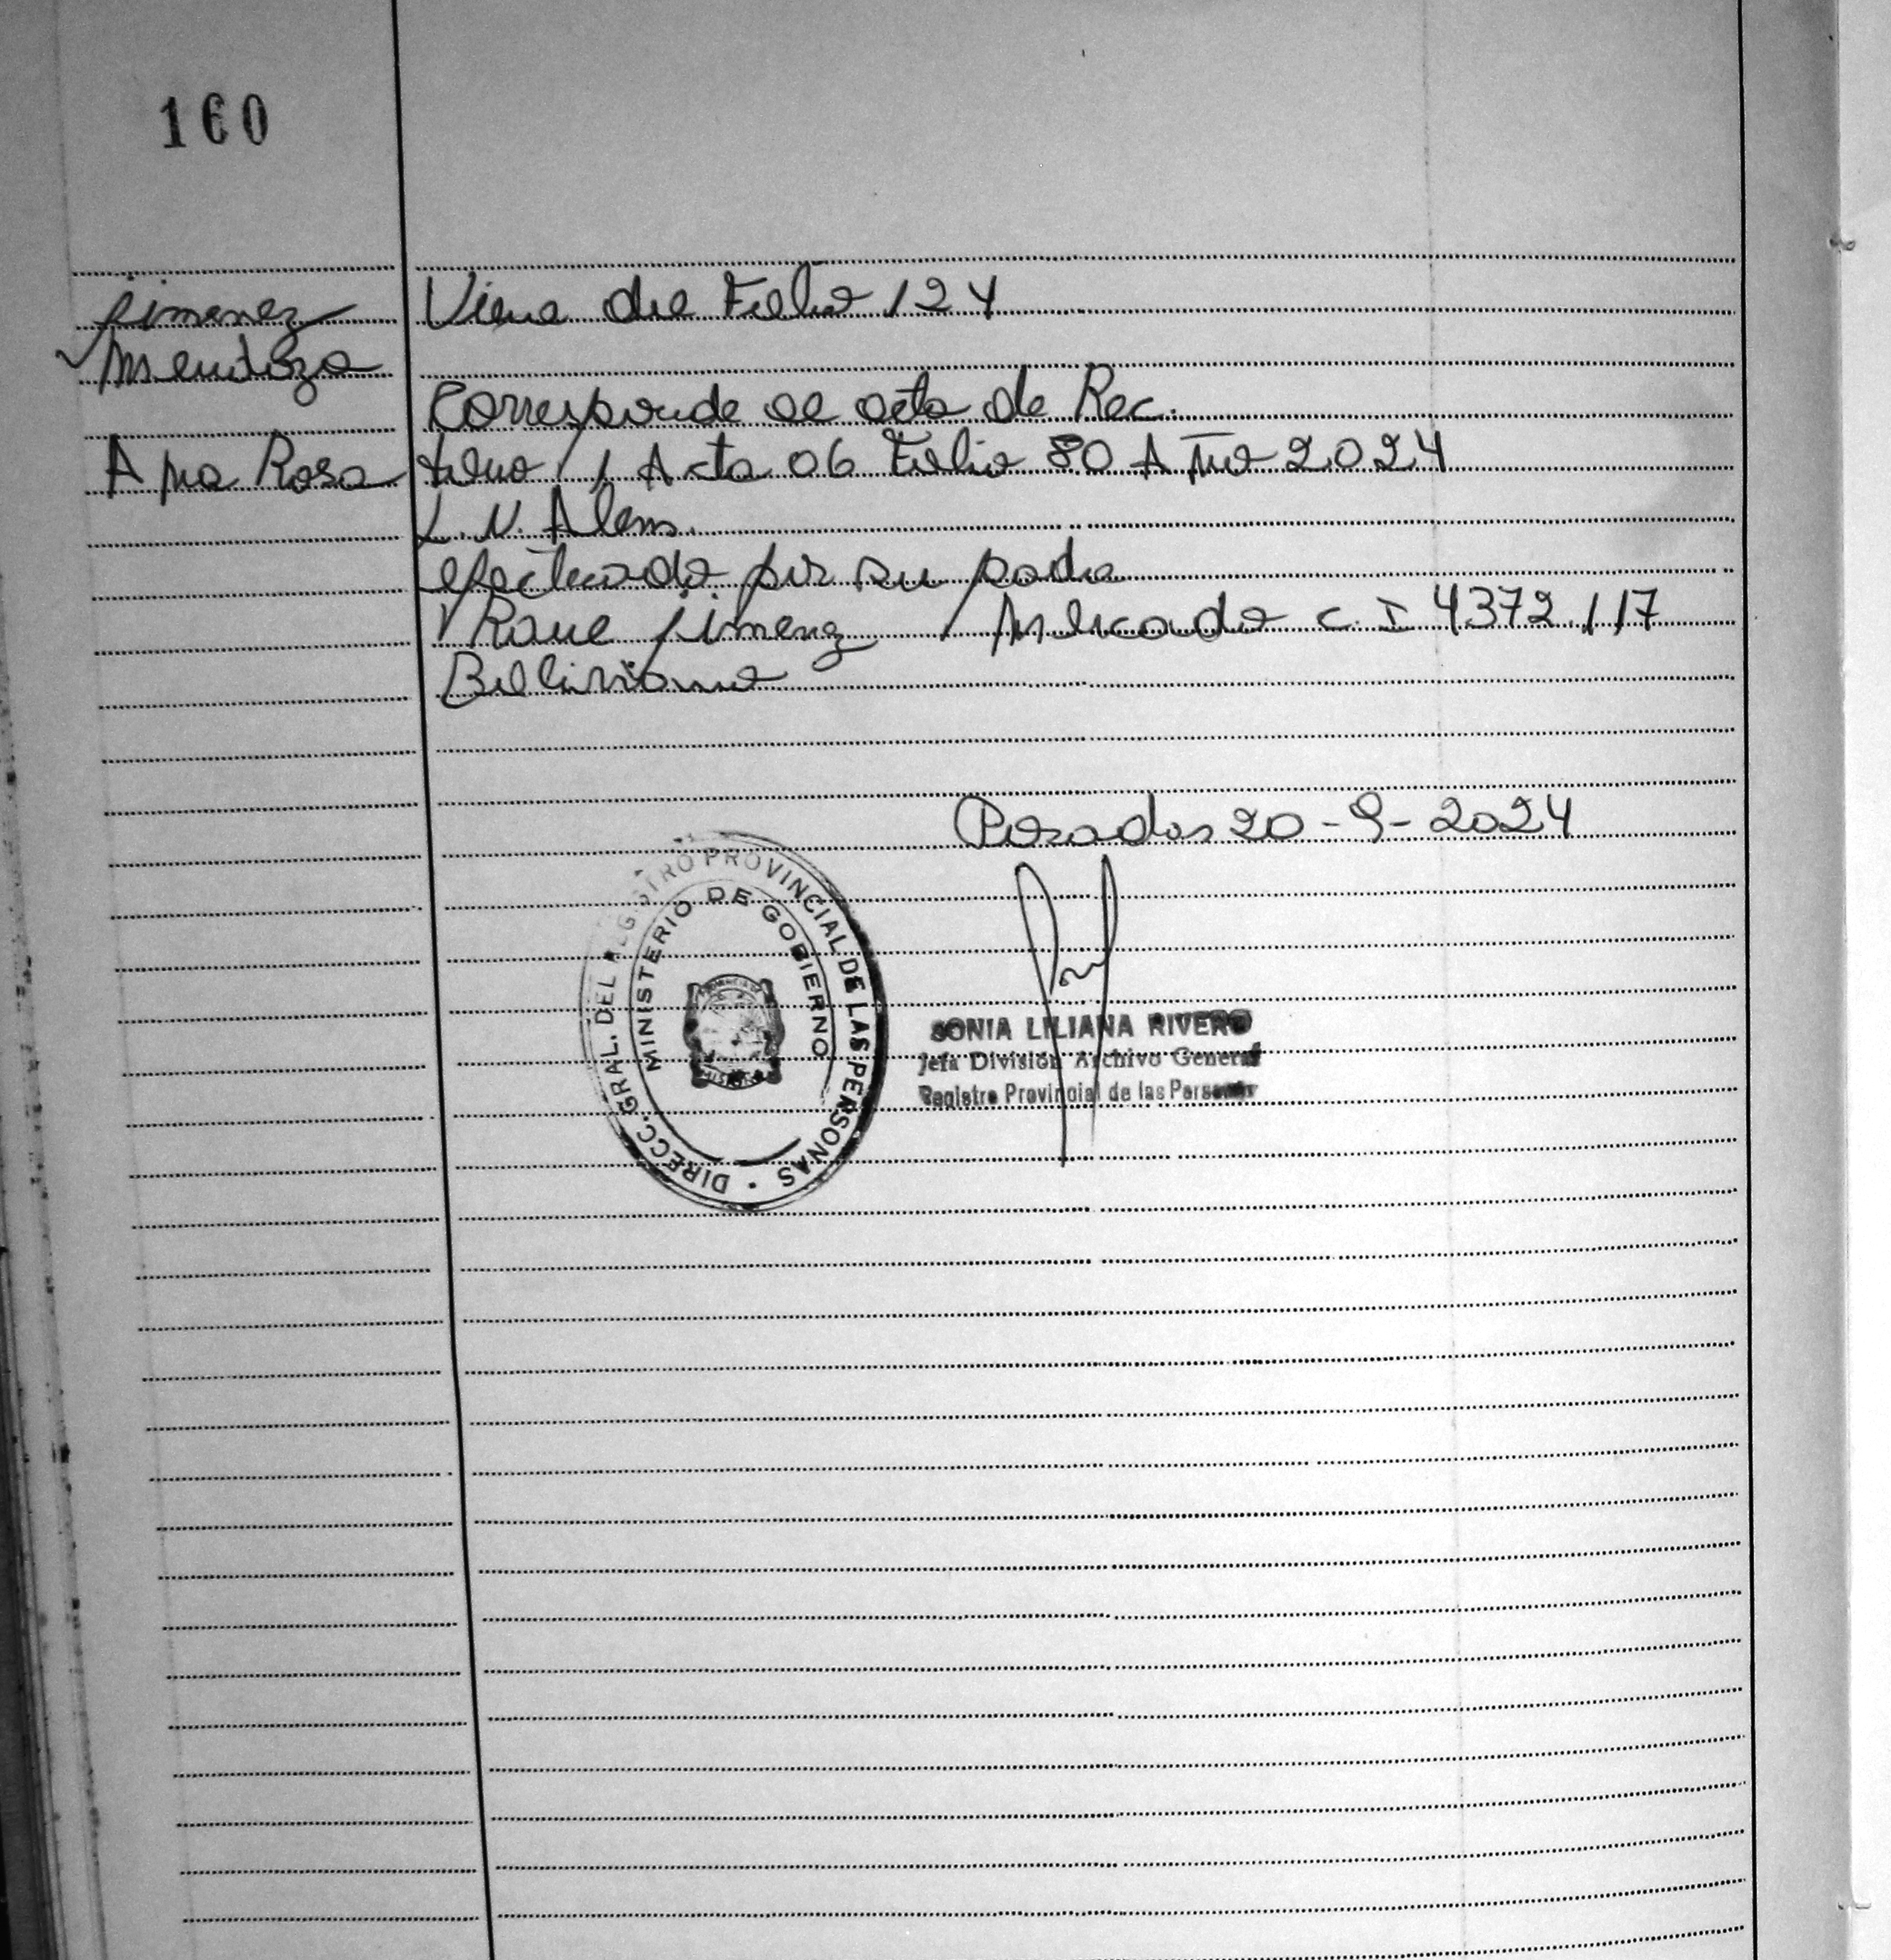 160
Jimenez
Mendoza
Ana Rosa
Viene del Folio 124
Corresponde al acta de Rec.
tomo 1 Acta 06 Folio 80 Año 2024
L.N. Alem.
efectuado por su padre
Raul Jimenez Mercado C.I 4372117
Boliviano
Posadas 20-9-2024
DIRECC. GRAL. DEL REGISTRO PROVINCIAL DE LAS PERSONAS
MINISTERIO DE GOBIERNO
SONIA LILIANA RIVERO
Jefa División Archivo General
Registro Provincial de las Personas